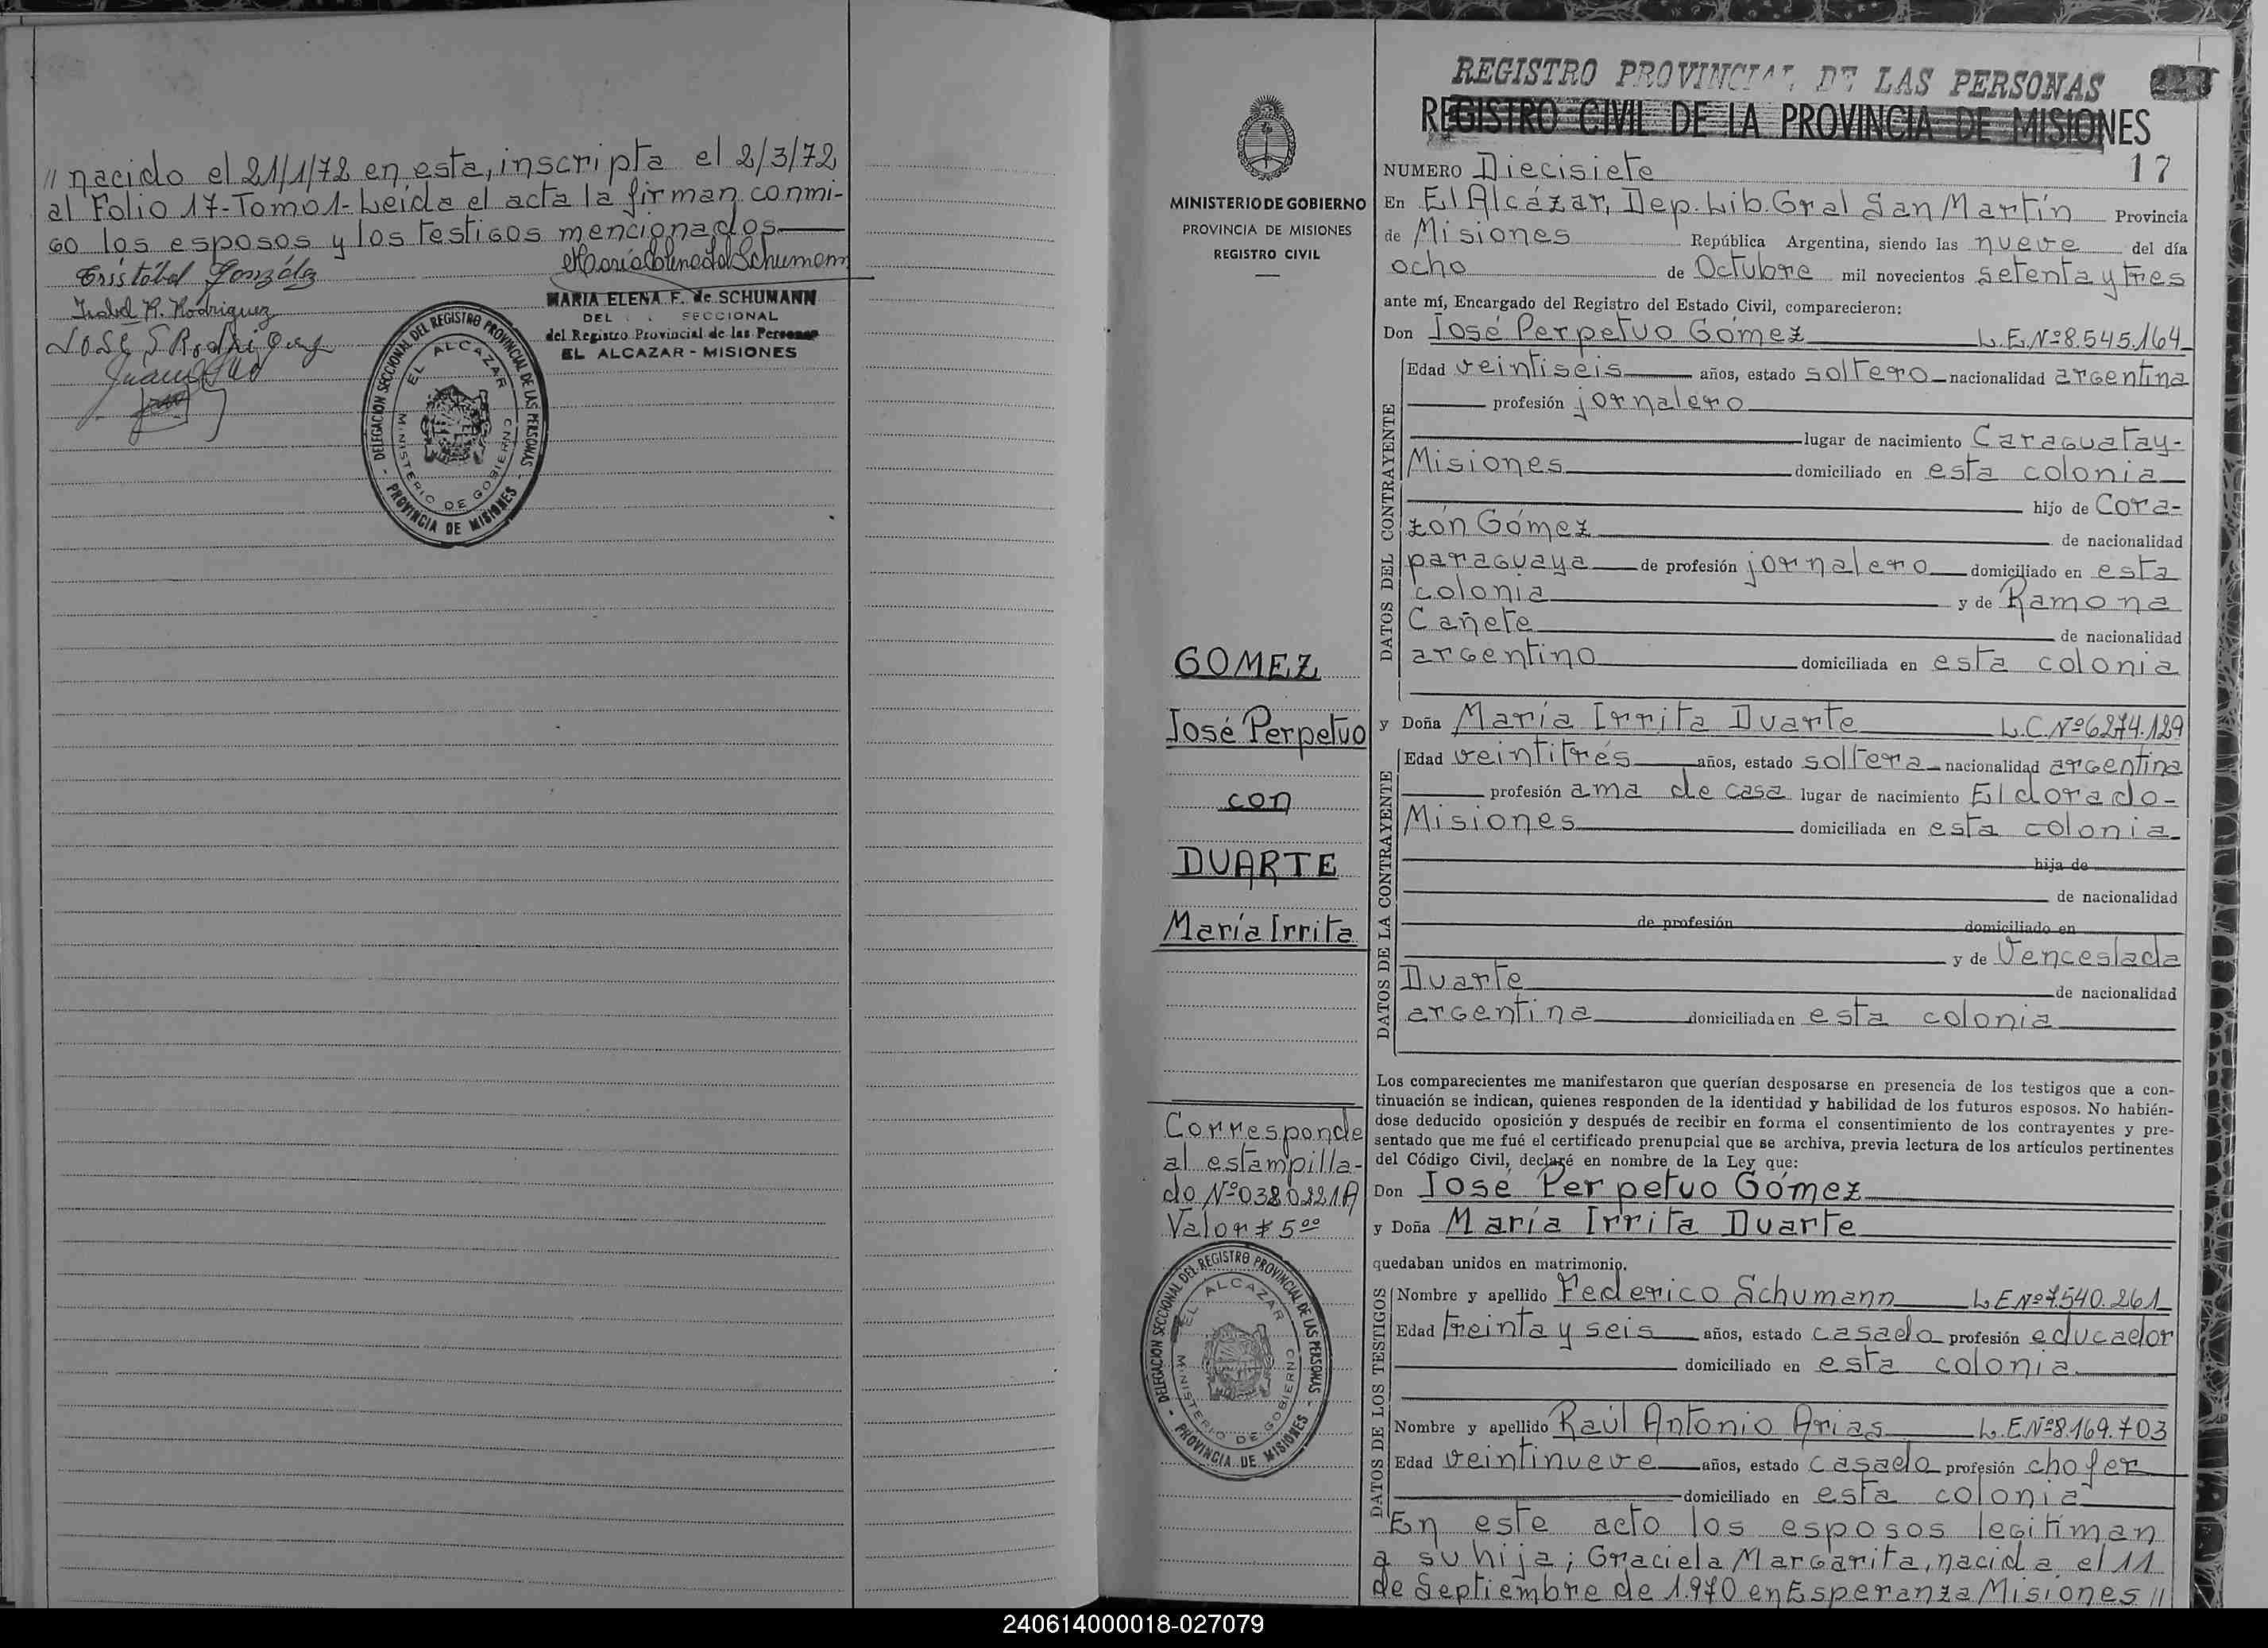 // nacido el 21/1/72 en esta, inscripta el 2/3/72
al Folio 17-Tomo 1- Leída el acta la firman conmi-
go los esposos y los testigos mencionados
Cristóbal González
Isabel R. Rodriguez
MARIA ELENA F. de SCHUMANN
DEL SECCIONAL
del Registro Provincial de las Personas
EL ALCAZAR - MISIONES
DELEGACION SECCIONAL DEL REGISTRO PROVINCIAL DE LAS PERSONAS
EL ALCAZAR
MINISTERIO DE GOBIERNO
PROVINCIA DE MISIONES
MINISTERIO DE GOBIERNO
PROVINCIA DE MISIONES
REGISTRO CIVIL
GOMEZ
José Perpetuo
con
DUARTE
María Irrita
Corresponde
al estampilla-
do Nº 0380221A
Valor $ 5,00
DELEGACION SECCIONAL DEL REGISTRO PROVINCIAL DE LAS PERSONAS
EL ALCAZAR
MINISTERIO DE GOBIERNO
PROVINCIA DE MISIONES
REGISTRO PROVINCIAL DE LAS PERSONAS
REGISTRO CIVIL DE LA PROVINCIA DE MISIONES
17
NUMERO Diecisiete
En El Alcázar, Dep. Lib. Gral San Martín Provincia
de Misiones República Argentina, siendo las nueve del día
ocho de Octubre mil novecientos setenta y tres
ante mí, Encargado del Registro del Estado Civil, comparecieron:
Don José Perpetuo Gómez L.E.Nº 8.545.164
DATOS DEL CONTRAYENTE
Edad veintiseis años, estado soltero nacionalidad argentina
profesión jornalero
lugar de nacimiento Caraguatay-
Misiones domiciliado en esta colonia
hijo de Cora-
zón Gómez de nacionalidad
paraguaya de profesión jornalero domiciliado en esta
colonia y de Ramona
Cañete de nacionalidad
argentino domiciliada en esta colonia
y Doña María Irrita Duarte L.C.Nº 6.274.129
DATOS DE LA CONTRAYENTE
Edad veintitrés años, estado soltera nacionalidad argentina
profesión ama de casa lugar de nacimiento Eldorado-
Misiones domiciliada en esta colonia
hija de
de nacionalidad
de profesión domiciliado en
y de Venceslada
Duarte de nacionalidad
argentina domiciliada en esta colonia
Los comparecientes me manifestaron que querían desposarse en presencia de los testigos que a con-
tinuación se indican, quienes responden de la identidad y habilidad de los futuros esposos. No habién-
dose deducido oposición y después de recibir en forma el consentimiento de los contrayentes y pre-
sentado que me fué el certificado prenupcial que se archiva, previa lectura de los artículos pertinentes
del Código Civil, declaré en nombre de la Ley que:
Don José Perpetuo Gómez
y Doña María Irrita Duarte
quedaban unidos en matrimonio.
DATOS DE LOS TESTIGOS
Nombre y apellido Federico Schumann L.E Nº 7.540.261
Edad treinta y seis años, estado casado profesión educador
domiciliado en esta colonia
Nombre y apellido Raúl Antonio Arias L.E.Nº 8.169.703
Edad veintinueve años, estado casado profesión chofer
domiciliado en esta colonia
En este acto los esposos legitiman
a su hija; Graciela Margarita, nacida el 11
de Septiembre de 1.970 en Esperanza Misiones //
240614000018-027079